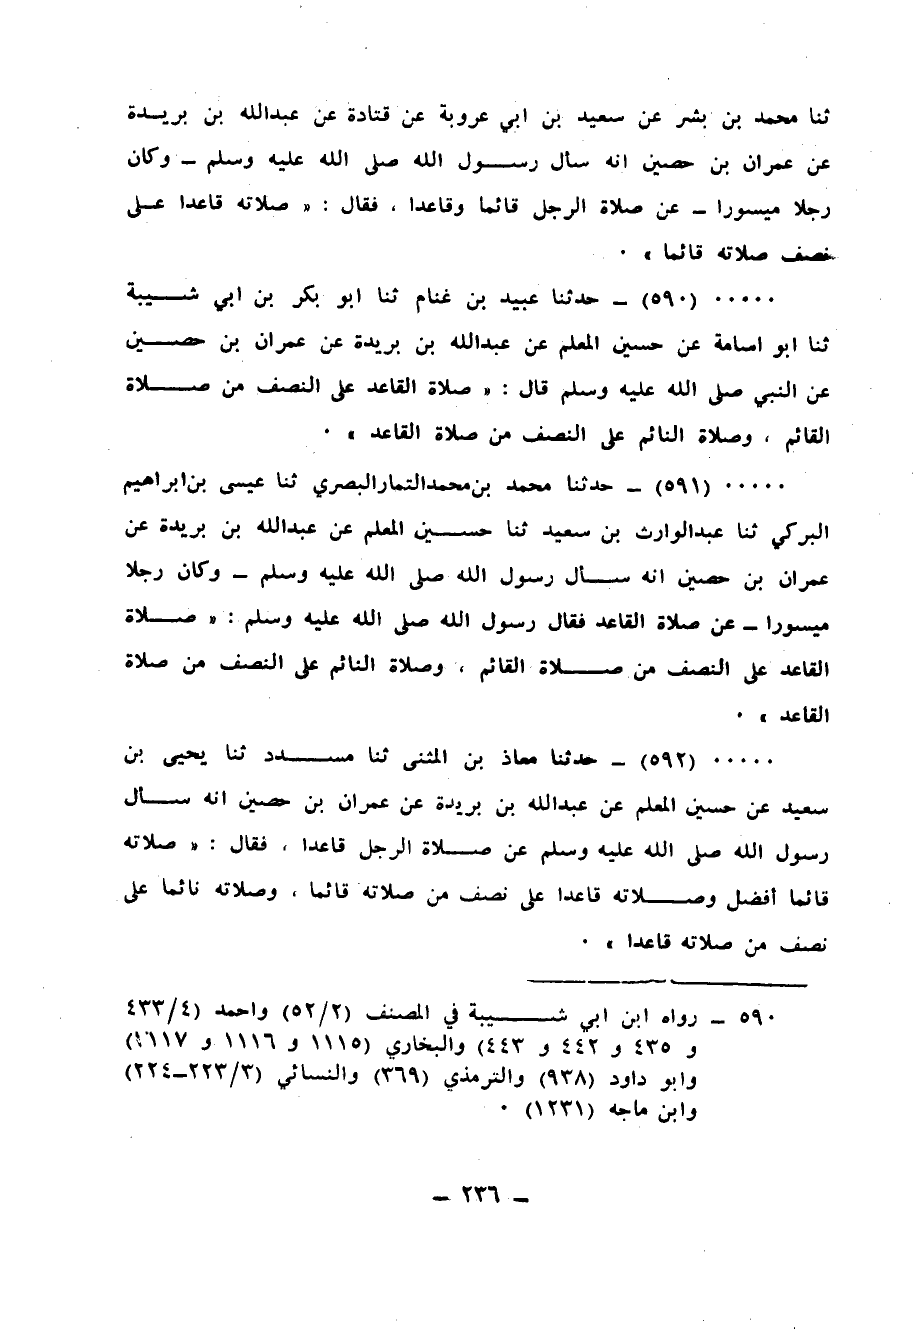 ثنا محمد بن بشر عن سعيد بن ابي عروبة عن قتادة عن عبدالله بن بريدة
عن عمران بن حصين انه سأل رسول الله صلى الله عليه وسلم ـ وكان
رجلا ميسورا ـ عن صلاة الرجل قائما وقاعدا ، فقال : « صلاته قاعدا على
نصف صلاته قائما » ٠
٠٠٠٠٠ (٥٩٠) ـ حدثنا عبيد بن غنام ثنا ابو بكر بن ابي شيبة
ثنا ابو اسامة عن حسين المعلم عن عبدالله بن بريدة عن عمران بن حصين
عن النبي صلى الله عليه وسلم قال : « صلاة القاعد على النصف من صلاة
القائم ، وصلاة النائم على النصف من صلاة القاعد » ٠
٠٠٠٠٠ (٥٩١) ـ حدثنا محمد بن محمد التمار البصري ثنا عيسى بن ابراهيم
البركي ثنا عبدالوارث بن سعيد ثنا حسين المعلم عن عبدالله بن بريدة عن
عمران بن حصين انه سأل رسول الله صلى الله عليه وسلم ـ وكان رجلا
ميسورا ـ عن صلاة القاعد فقال رسول الله صلى الله عليه وسلم : « صلاة
القاعد على النصف من صلاة القائم ، وصلاة النائم على النصف من صلاة
القاعد » ٠
٠٠٠٠٠ (٥٩٢) ـ حدثنا معاذ بن المثنى ثنا مسدد ثنا يحيى بن
سعيد عن حسين المعلم عن عبدالله بن بريدة عن عمران بن حصين انه سأل
رسول الله صلى الله عليه وسلم عن صلاة الرجل قاعدا ، فقال : « صلاته
قائما أفضل وصلاته قاعدا على نصف من صلاته قائما ، وصلاته نائما على
نصف من صلاته قاعدا » ٠
٥٩٠ ـ رواه ابن ابي شيبة في المصنف (٥٢/٢) واحمد (٤٣٣/٤
و ٤٣٥ و ٤٤٢ و ٤٤٣) والبخاري (١١١٥ و ١١١٦ و ١١١٧)
وابو داود (٩٣٨) والترمذي (٣٦٩) والنسائي (٢٢٣/٣ـ٢٢٤)
وابن ماجه (١٢٣١) ٠
ـ ٢٣٦ ـ